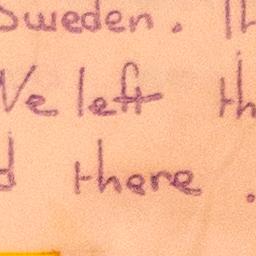 Sweden.
We left
there.